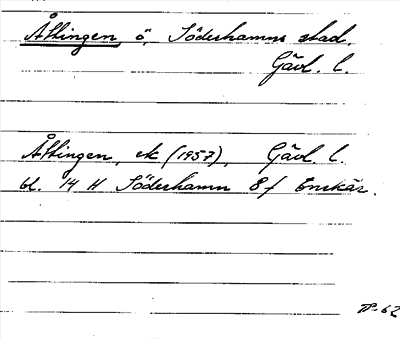 Åltingen, ö, Söderhamns stad,
Gävl. l.
Åltingen, ek (1957), Gävl. l.
bl. 14 H Söderhamn 8 f Enskär.